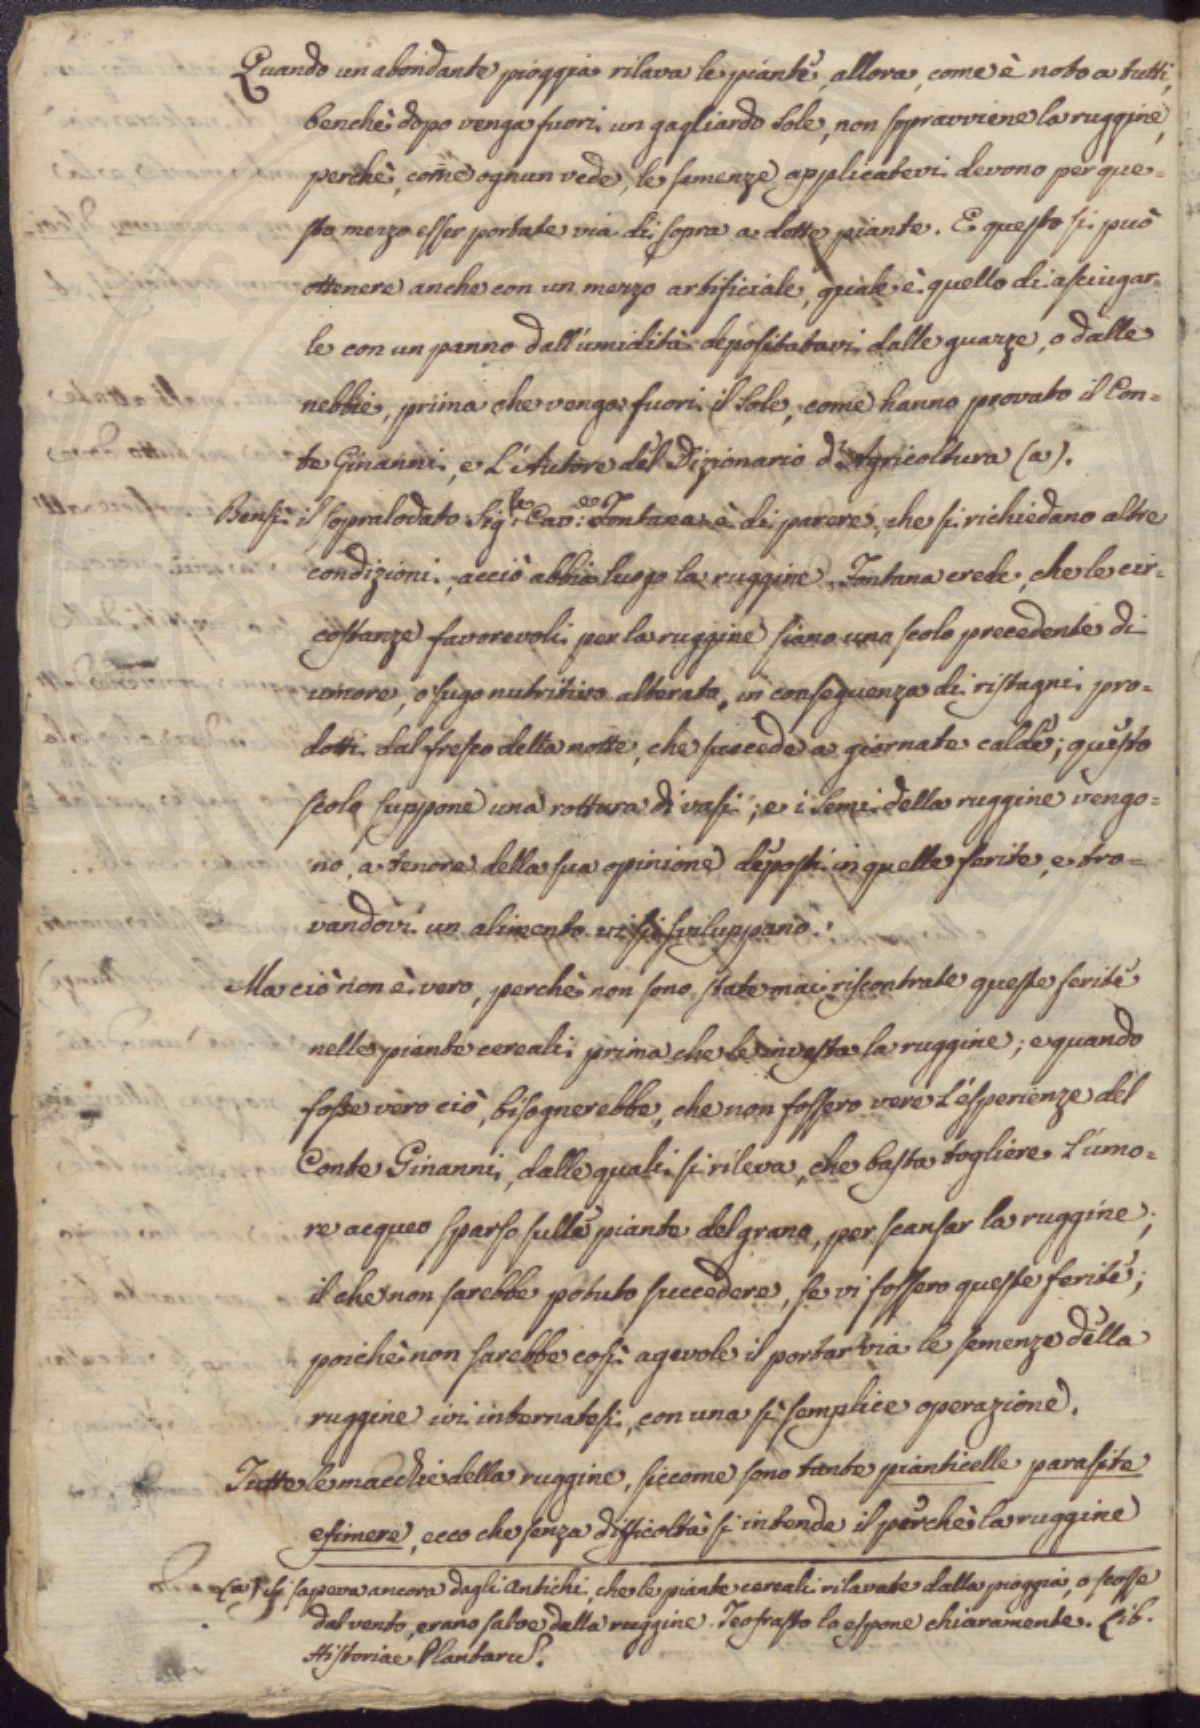 Quando un abondante pioggia rilava le piante, allora, come è noto a tutti,
benchè dopo venga fuori un gagliardo Sole, non sopravviene la ruggine,
perchè, come ognun vede, le semenze applicatevi devono per que=
sto mezzo esser portate via di sopra a dette piante. E questo si può
ottenere anche con un mezzo artificiale, quale è quello di asciugar=
le con un panno dall'umidità depositatavi dalle guazze, o dalle
nebbie, prima che venga fuori il Sole, come hanno provato il Con=
te Ginanni, e L'Autore del Dizionario d'Agricoltura (a).
Bensì il sopralodato Sig.re Cav: Fontana è di parere, che si richiedano altre
condizioni, acciò abbia luogo la ruggine. Fontana crede, che le cir=
costanze favorevoli per la ruggine siano uno scolo precedente di
umore, o sugo nutritivo alterato, in conseguenza di ristagni pro=
dotti dal fresco della notte, che succede a giornate calde; questo
scolo suppone una rottura di vasi; e i Semi della ruggine vengo=
no, a tenore della sua opinione deposti in quelle ferite, e tro=
vandovi un alimento vi si sviluppano.
Ma ciò non è vero, perchè non sono state mai riscontrate queste ferite
nelle piante cereali prima che le investa la ruggine; e quando
fosse vero ciò, bisognerebbe, che non fossero vere L'esperienze del
Conte Ginanni, dalle quali si rileva, che basta togliere L'umo=
re acqueo sparso sulle piante del grano, per scansar la ruggine;
il che non sarebbe potuto succedere, se vi fossero queste ferite;
poichè non sarebbe così agevole il portar via le semenze della
ruggine ivi internatesi, con una sì semplice operazione.
Tutte le macchie della ruggine, siccome sono tante pianticelle parasite
efimere, ecco che senza difficoltà s'intende il perchè la ruggine
(a) Si sapeva ancora dagli Antichi, che le piante cereali rilavate dalla pioggia, o scosse
dal vento, erano salve dalla ruggine. Teofrasto lo espone chiaramente. Lib.
Historiae Plantarū.